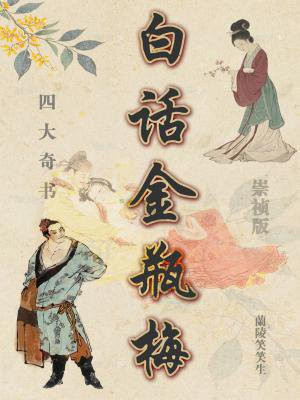 白话金瓶梅
四大奇书
崇祯版
蘭陵笑笑生